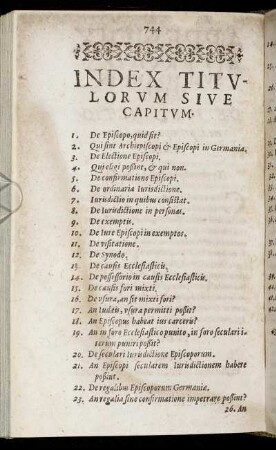 744
INDEX TITV-
LORVM SIVE
CAPITVM.
1. De Episcopo, quid sit?
2. Qui sint Archiepiscopi & Episcopi in Germania.
3. De Electione Episcopi.
4. Qui eligi possint, & qui non.
5. De confirmatione Episcopi.
6. De ordinaria Iurisdictione.
7. Iurisdictio in quibus consistat.
8. De Iurisdictione in personas.
9. De exemptis.
10. De Iure Episcopi in exemptos.
11. De visitatione.
12. De Synodo.
13. De causis Ecclesiasticis.
14. De possessorio in causis Ecclesiasticis.
15. De causis fori mixti.
16. De vsura, an sit mixti fori?
17. An Iudæis, vsura permitti possit?
18. An Episcopus habeat ius carceris?
19. An in foro Ecclesiastico punito, in foro seculari i-
terum puniri possit?
20. De seculari Iurisdictione Episcoporum.
21. An Episcopi secularem Iurisdictionem habere
possint.
22. De regalibus Episcoporum Germaniæ.
23. An regalia sine confirmatione impetrare possint?
26. An